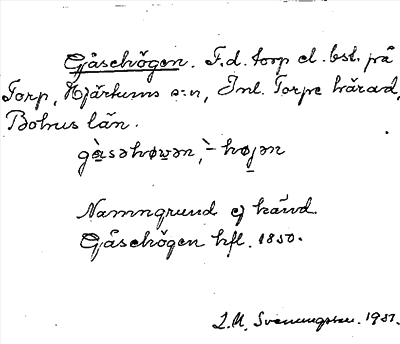 Gåsehögen. F.d. torp el. bst. på
Torp, Hjärtums s:n, Inl. Torpe härad,
Bohus län.
gàsəhøwən, `- højən
Namngrund ej känd.
Gåsehögen hfl. 1850.
Svenungsson. 1931.